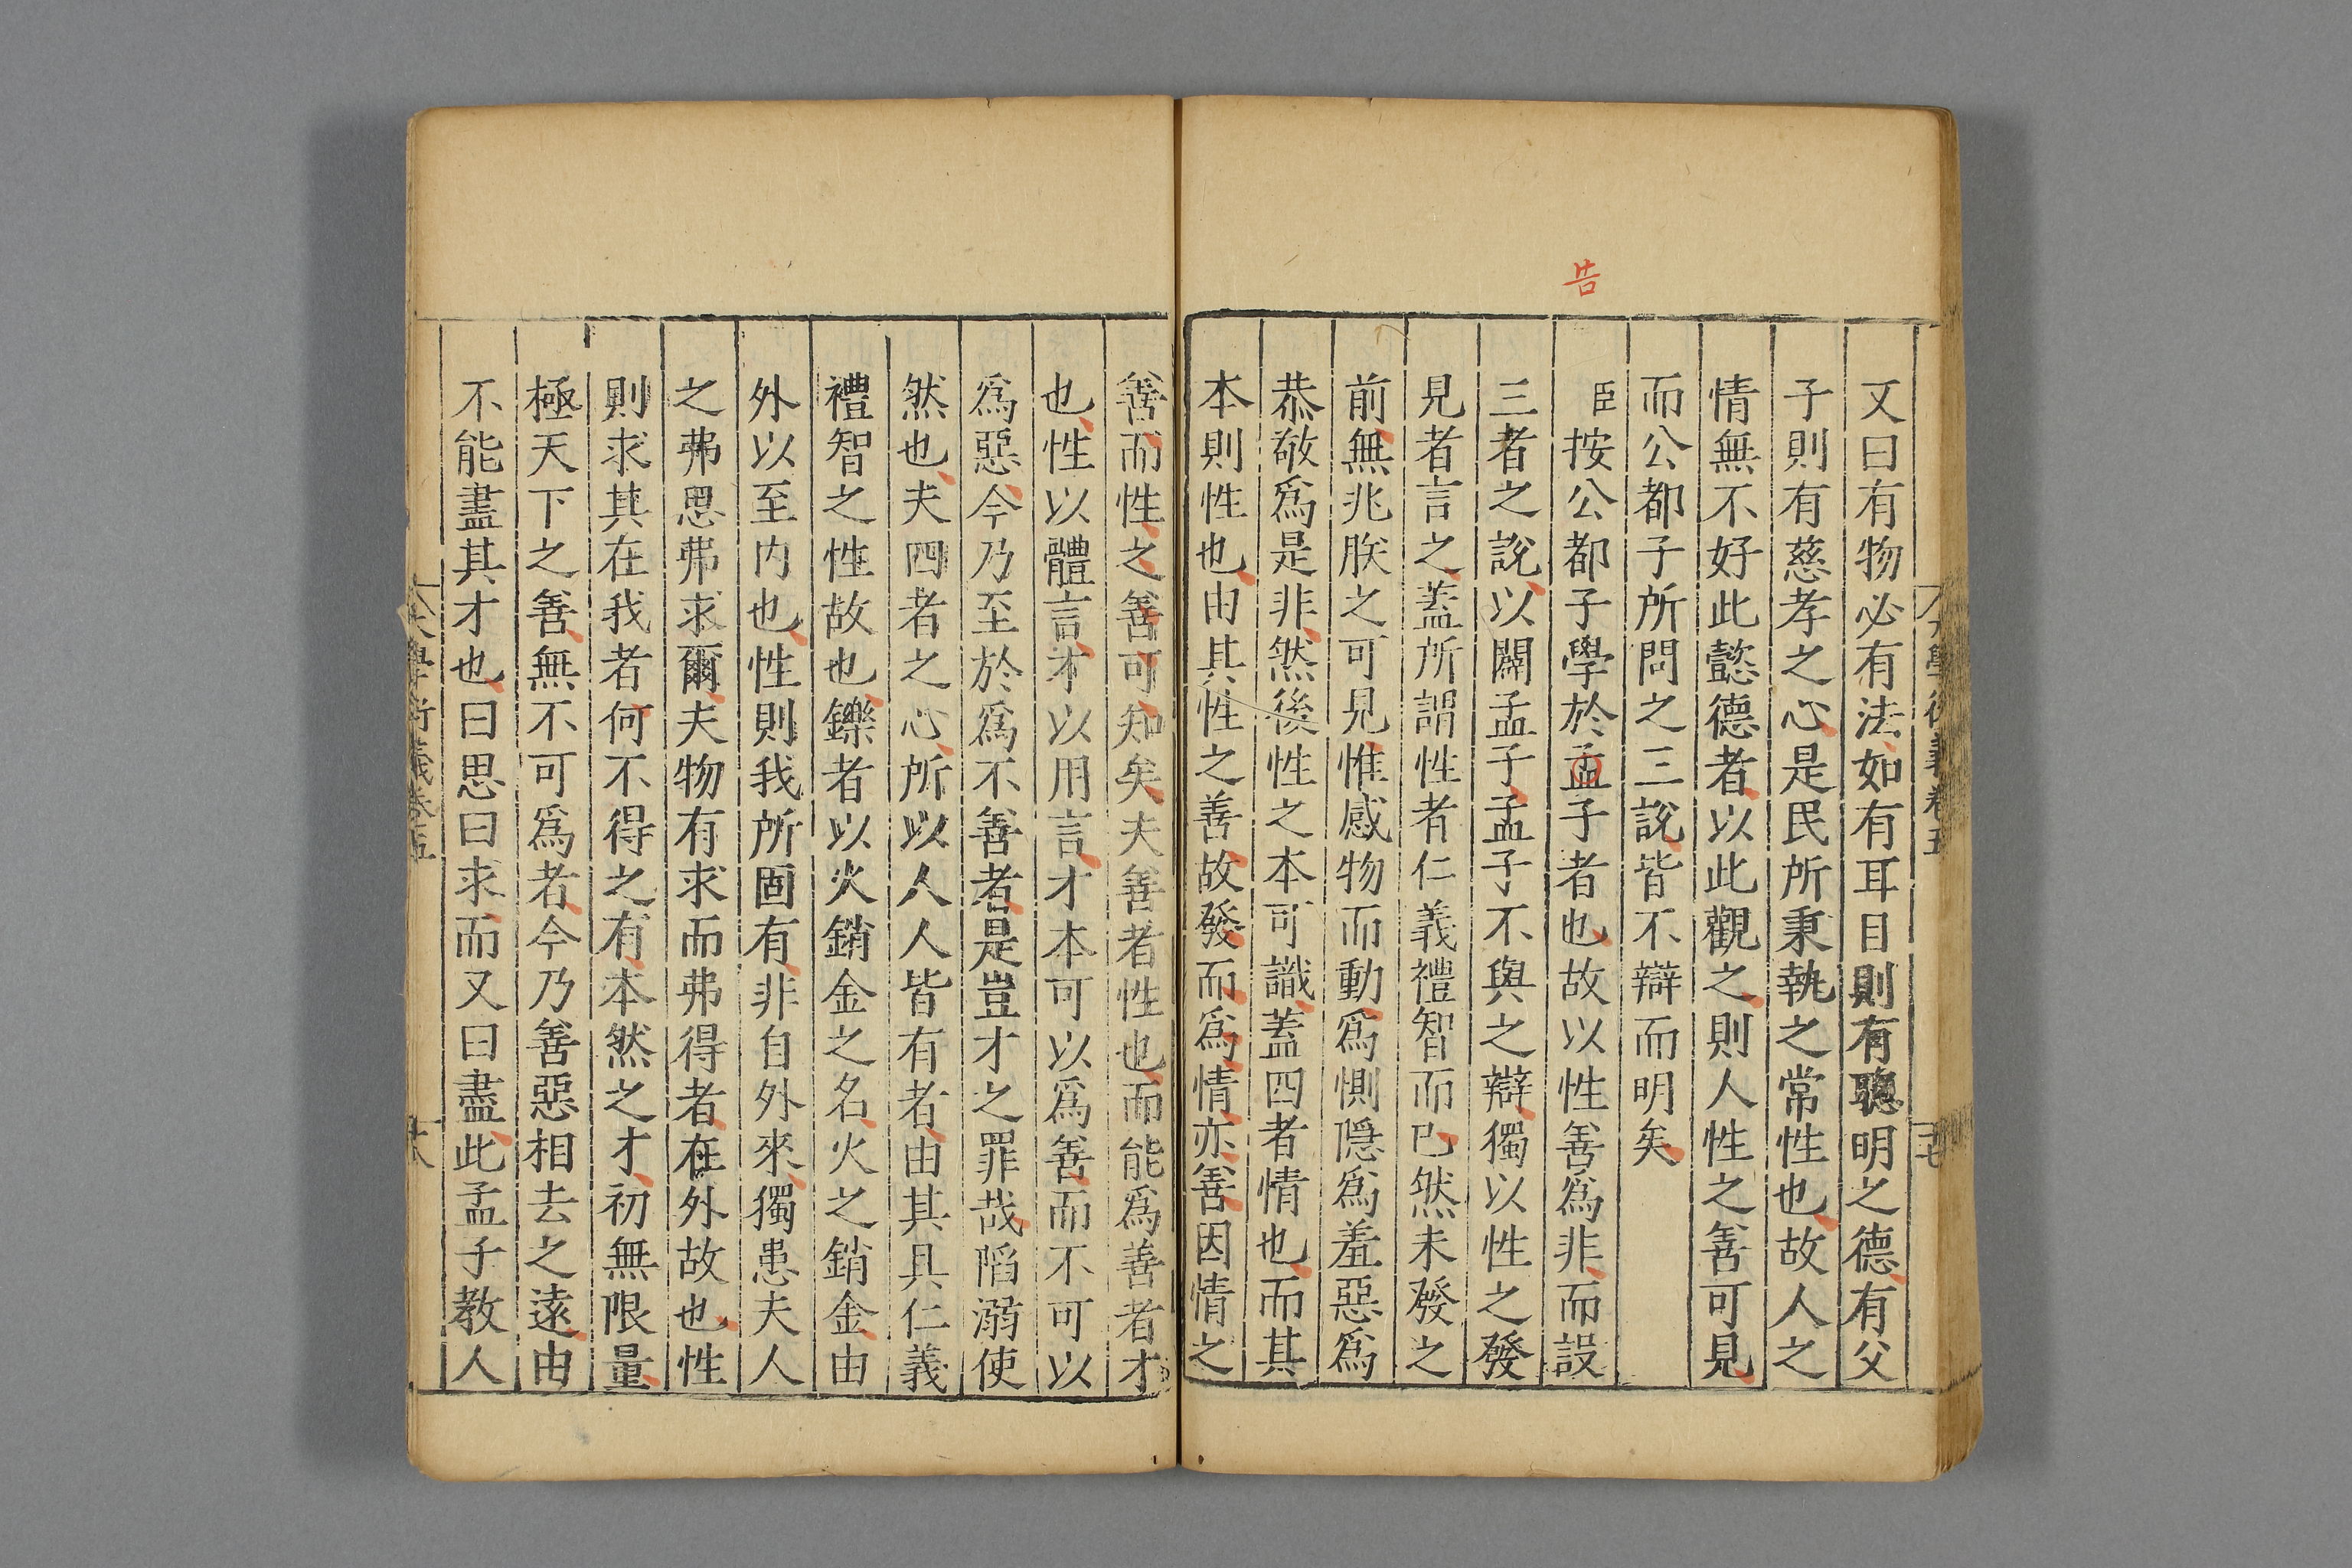 又曰有物必有法如有耳目則有聰明之德有父
子則有慈孝之心是民所秉執之常性也故人之
情無不好此懿德者以此觀之則人性之善可見
而公都子所問之三說皆不辯而明矣
告
臣按公都子學於孟子者也故以性善爲非而設
三者之說以闢孟子孟子不與之辯獨以性之發
見者言之蓋所謂性者仁義禮智而已然未發之
前無兆朕之可見惟感物而動爲惻隱爲羞惡爲
恭敬爲是非然後性之本可識蓋四者情也而其
本則性也由其性之善故發而爲情亦善因情之
善而性之善可知矣夫善者性也而能爲善者才
也性以體言才以用言才本可以爲善而不可以
爲惡今乃至於爲不善者是豈才之罪哉陷溺使
然也夫四者之心所以人人皆有者由其具仁義
禮智之性故也鑠者以火銷金之名火之銷金由
外以至内也性則我所固有非自外來獨患夫人
之弗思弗求爾夫物有求而弗得者在外故也性
則求其在我者何不得之有本然之才初無限量
極天下之善無不可爲者今乃善惡相去之遠由
不能盡其才也曰思曰求而又曰盡此孟子教人